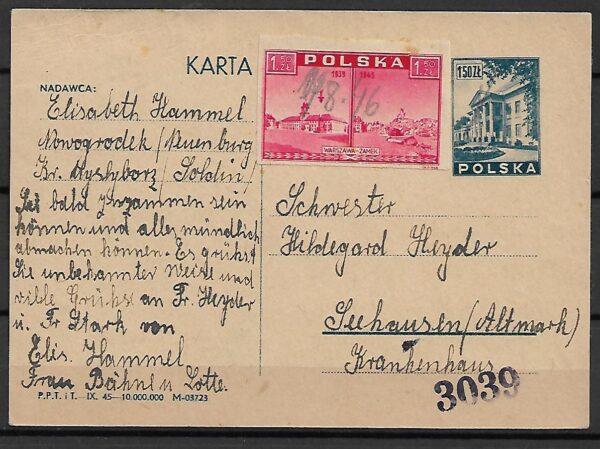 KARTA
NADAWCA:
Elisabeth Hammel
Nowogrodek / Neuenburg
Kr. Myslyborz / Soldin /
bald zusammen sein
können und alles mündlich
abmachen können. Es grühst
Sie unbekannter weise und
ville Grühse an Fr. Heyder
u. Fr Stark von
Elis. Hammel
Frau Böhni u Lotte.
P.P.T. i T. IX. 45— 10.000.000 M-03723
1.50 ZŁ POLSKA 1.50 ZŁ
1939 1945
8.46
WARSZAWA-ZAMEK
150 ZŁ
POLSKA
Schwester
Hildegard Heyder
Seehausen (Altmark)
Krankenhaus
3039